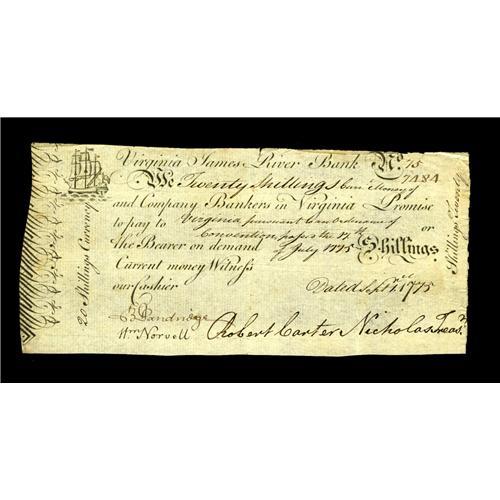 Virginia James River Bank No. 75
7484
We Twenty Shillings Current Money of
and Company Bankers in Virginia Promise
to pay to Virginia pursuant to an Ordinance of or
Convention passed the 17th
the Bearer on demand of July 1775 Shillings
Current money Witness
our Cashier
Dated Sept. 1st 1775
B Dandridge
Wm Norvell
Robert Carter Nicholas Treasr
20 Shillings Currency
Shillings Twenty